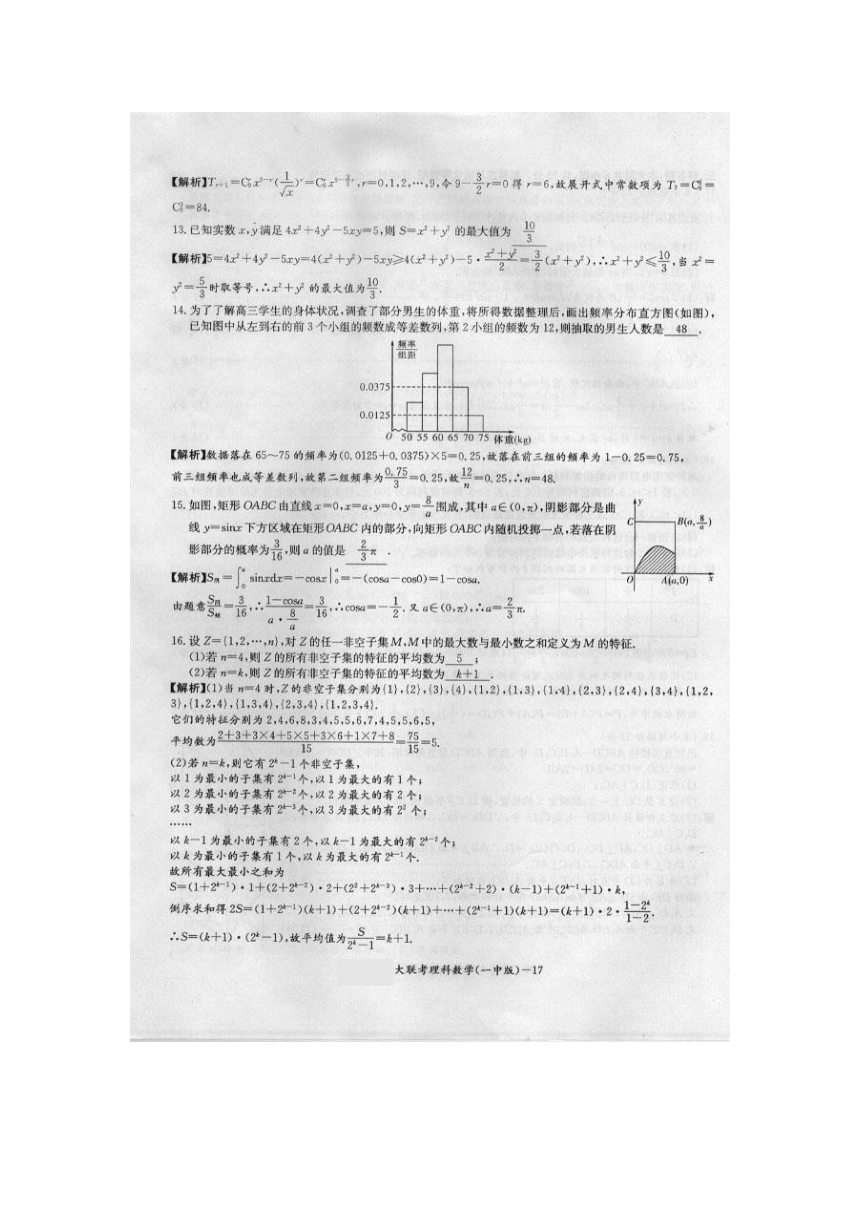 【解析】Tᵣ₊₁=C₉ʳx⁹⁻ʳ(1/√x)ʳ=C₉ʳx^(9-3/2 r),r=0,1,2,…,9,令9-3/2 r=0得r=6,故展开式中常数项为T₇=C₉⁶=
C₉³=84.
13.已知实数x,y满足4x²+4y²-5xy=5,则S=x²+y²的最大值为 10/3
【解析】5=4x²+4y²-5xy=4(x²+y²)-5xy≥4(x²+y²)-5·(x²+y²)/2=3/2(x²+y²),∴x²+y²≤10/3,当x²=
y²=5/3时取等号,∴x²+y²的最大值为10/3.
14.为了了解高三学生的身体状况,调查了部分男生的体重,将所得数据整理后,画出频率分布直方图(如图),
已知图中从左到右的前3个小组的频数成等差数列,第2小组的频数为12,则抽取的男生人数是 48 .
频率
组距
0.0375
0.0125
O 50 55 60 65 70 75 体重(kg)
【解析】数据落在65~75的频率为(0.0125+0.0375)×5=0.25,故落在前三组的频率为1-0.25=0.75,
前三组频率也成等差数列,故第二组频率为0.75/3=0.25,故12/n=0.25,∴n=48.
15.如图,矩形OABC由直线x=0,x=a,y=0,y=8/a围成,其中a∈(0,π),阴影部分是曲
线y=sinx下方区域在矩形OABC内的部分,向矩形OABC内随机投掷一点,若落在阴
影部分的概率为3/16,则a的值是 2/3π .
y
C B(a,8/a)
O A(a,0) x
【解析】S阴=∫₀ᵃsinxdx=-cosx|₀ᵃ=-(cosa-cos0)=1-cosa.
由题意S阴/S矩=3/16,∴(1-cosa)/(a·8/a)=3/16,∴cosa=-1/2.又a∈(0,π),∴a=2/3π.
16.设Z={1,2,…,n},对Z的任一非空子集M,M中的最大数与最小数之和定义为M的特征.
(1)若n=4,则Z的所有非空子集的特征的平均数为 5 ;
(2)若n=k,则Z的所有非空子集的特征的平均数为 k+1 .
【解析】(1)当n=4时,Z的非空子集分别为{1},{2},{3},{4},{1,2},{1,3},{1,4},{2,3},{2,4},{3,4},{1,2,
3},{1,2,4},{1,3,4},{2,3,4},{1,2,3,4}.
它们的特征分别为2,4,6,8,3,4,5,5,6,7,4,5,5,6,5,
平均数为(2+3+3×4+5×5+3×6+1×7+8)/15=75/15=5.
(2)若n=k,则它有2ᵏ-1个非空子集,
以1为最小的子集有2ᵏ⁻¹个,以1为最大的有1个;
以2为最小的子集有2ᵏ⁻²个,以2为最大的有2个;
以3为最小的子集有2ᵏ⁻³个,以3为最大的有2²个;
……
以k-1为最小的子集有2个,以k-1为最大的有2ᵏ⁻²个;
以k为最小的子集有1个,以k为最大的有2ᵏ⁻¹个.
故所有最大最小之和为
S=(1+2ᵏ⁻¹)·1+(2+2ᵏ⁻²)·2+(2²+2ᵏ⁻³)·3+…+(2ᵏ⁻²+2)·(k-1)+(2ᵏ⁻¹+1)·k,
倒序求和得2S=(1+2ᵏ⁻¹)(k+1)+(2+2ᵏ⁻²)(k+1)+…+(2ᵏ⁻¹+1)(k+1)=(k+1)·2·(1-2ᵏ)/(1-2).
∴S=(k+1)·(2ᵏ-1),故平均值为S/(2ᵏ-1)=k+1.
大联考理科数学(一中版)-17